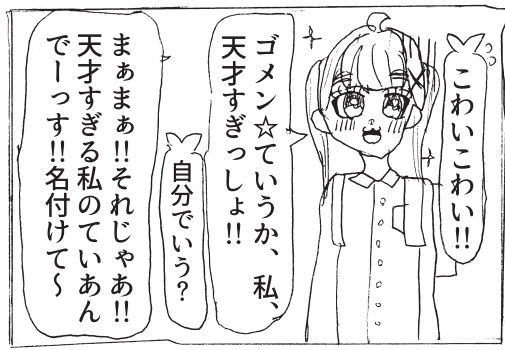 こわいこわい!!
ゴメン☆ていうか、私、
天才すぎっしょ!!
自分でいう?
まぁまぁ!!それじゃあ!!
天才すぎる私のていあん
でーっす!!名付けて〜